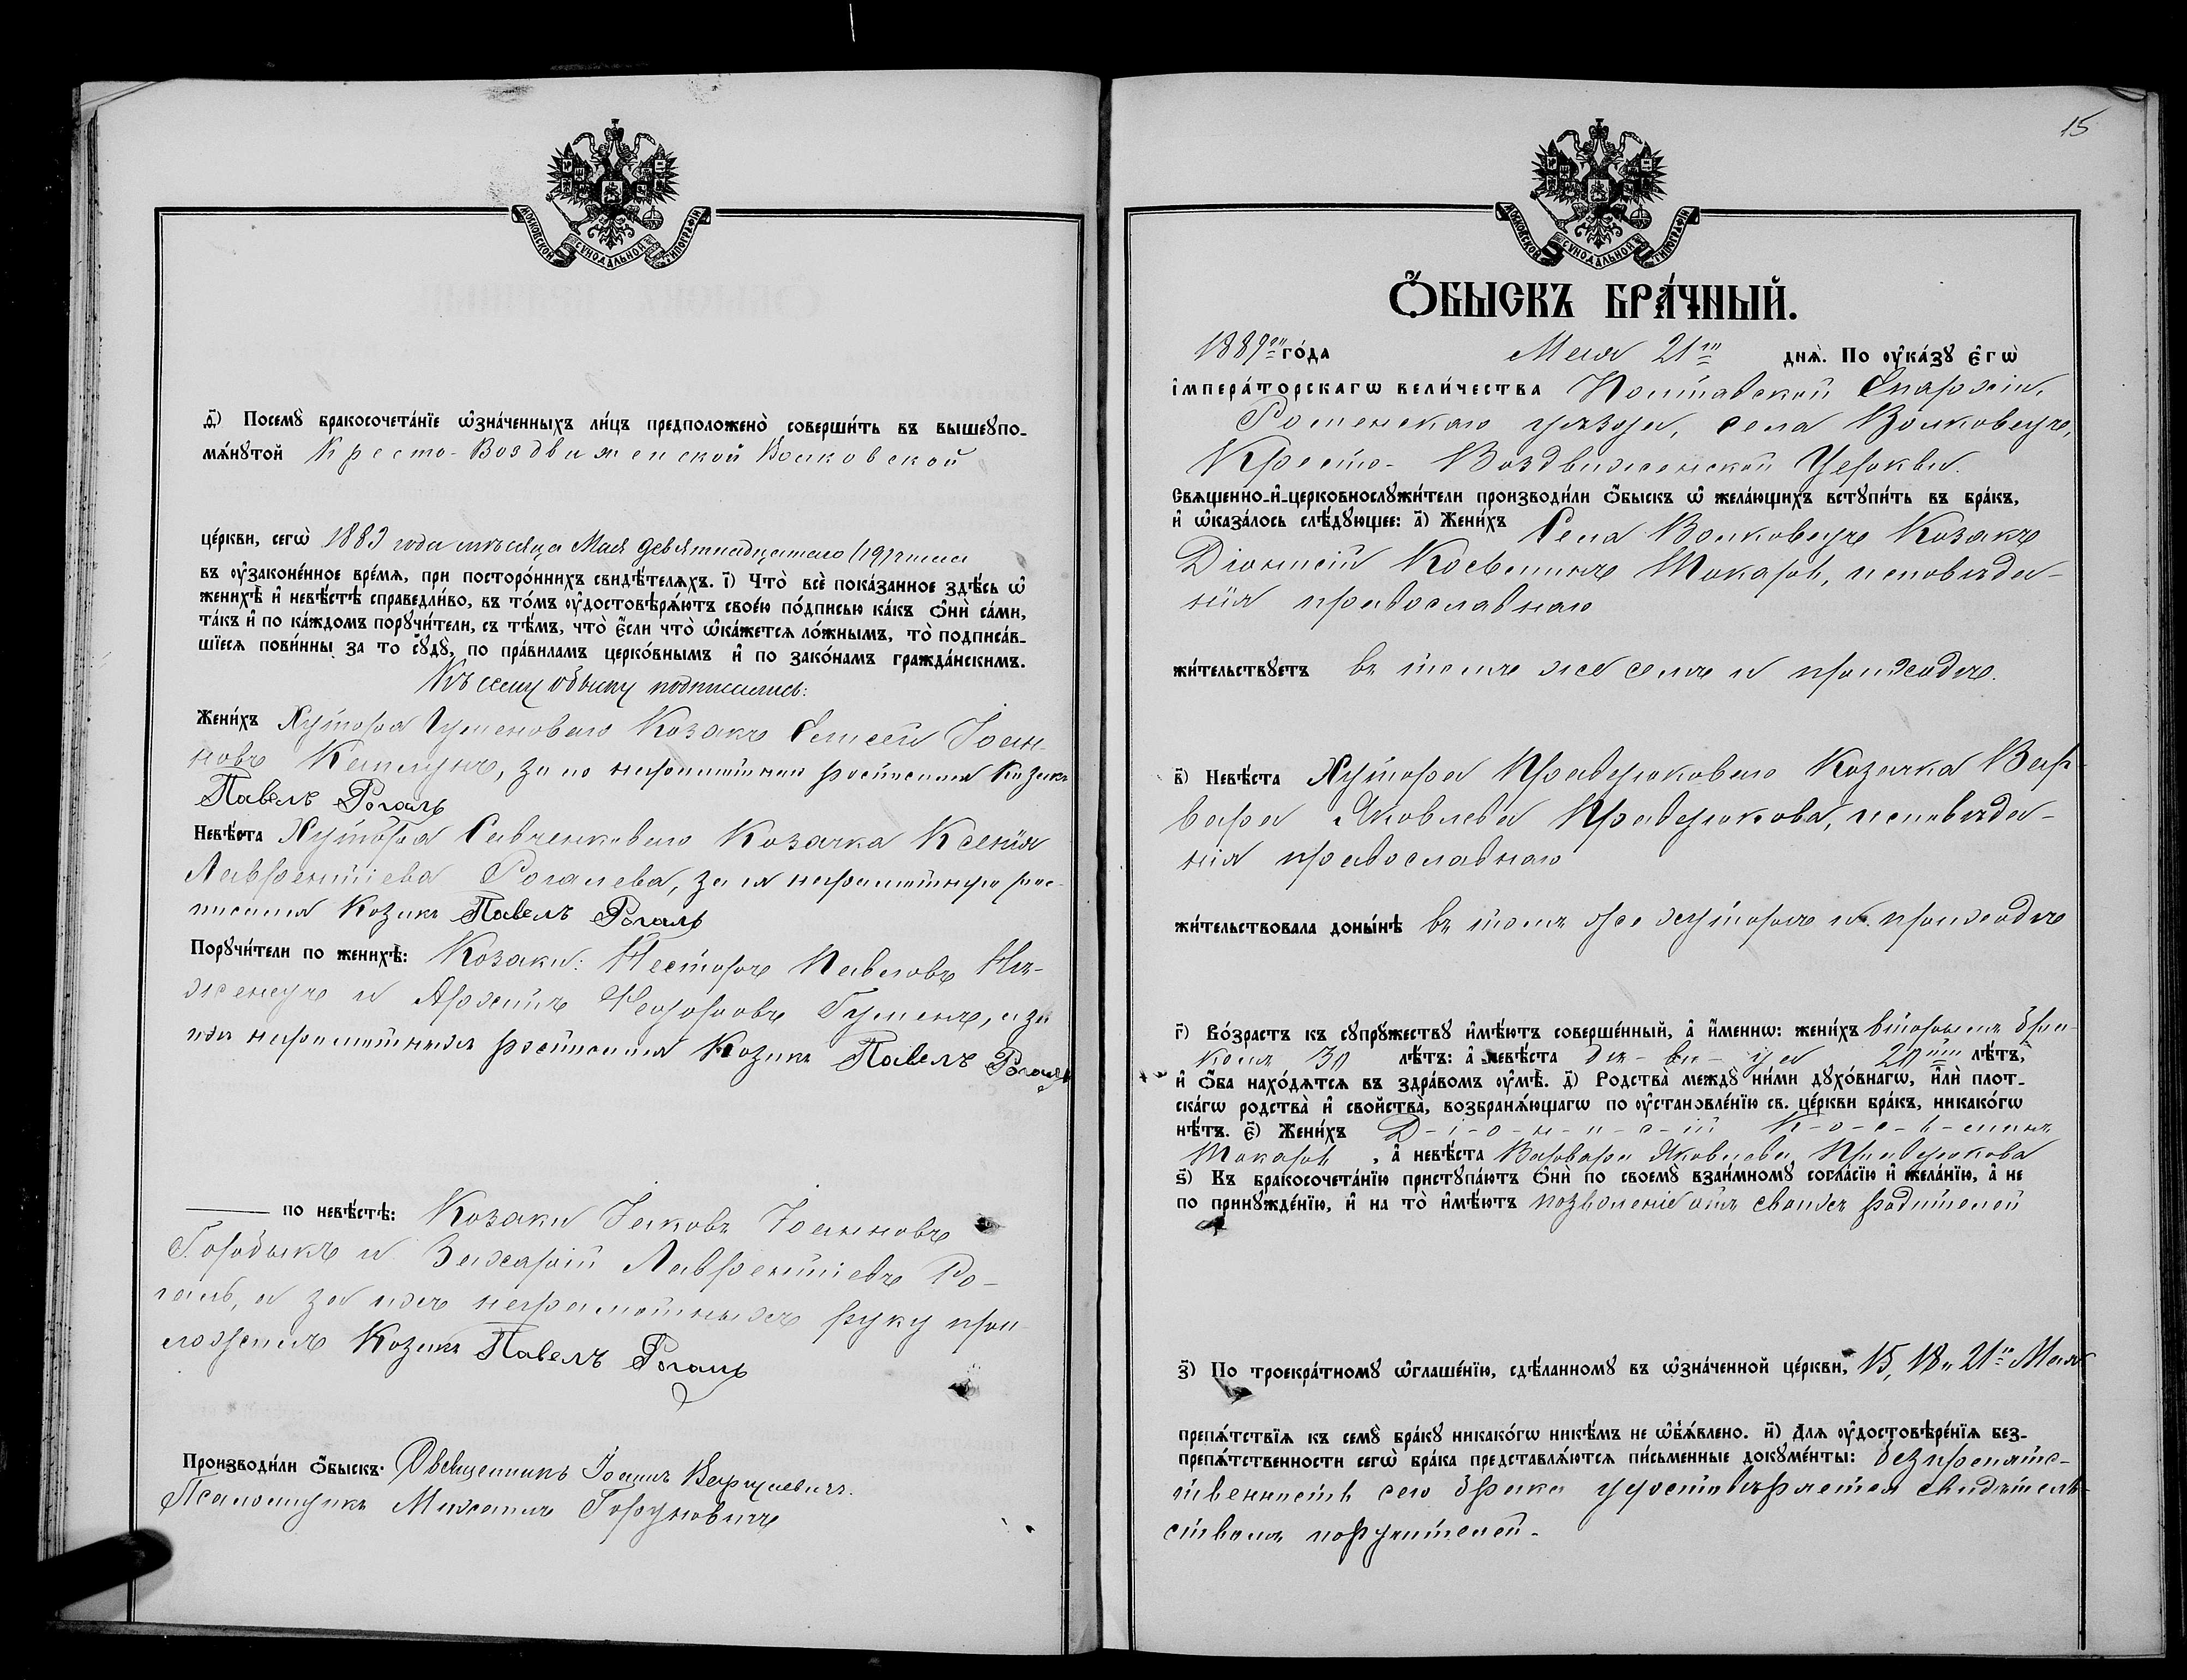 МОСКОВСКОЙ СѴНОДАЛЬНОЙ ТИПОГРАФІИ
д҃і) Посемꙋ бракосочетанїе ѡзначенныхъ лицъ предположено совершить въ вышеꙋпо-
мѧнꙋтой Кресто-Воздвиженской Волковской
церкви, сегѡ 1889 года мѣсяца Мая девятнадцатаго (19) числа
въ ᲂузаконенное времѧ, при постороннихъ свидѣтелѧхъ. і҃) Что все показанное здѣсь ѡ
женихѣ и невѣстѣ справедливо, въ томъ ᲂудостовѣрѧютъ своею подписью какъ ѻни сами,
такъ и по каждомъ порꙋчители, съ тѣмъ, что если что ѡкажетсѧ ложнымъ, то подписав-
шїесѧ повинны за то сꙋдꙋ, по правиламъ церковнымъ и по законамъ гражданскимъ.
Къ сему обыску подписались:
Женихъ Хутора Гуменоваго Козакъ Елисей Іоан-
новъ за неграмотнаго росписался Козакъ
Павелъ Рогаль
Невѣста Хутора Савченковаго Козачка Ксенія
Лаврентіева Рогалева, за я неграмотную рос-
писался Козакъ Павелъ Рогаль
Порꙋчители по женихѣ: Козаки: Несторъ Павловъ Нѣ-
женецъ и Архипъ Феодоровъ Гуменъ, а за
ихъ неграмотныхъ росписался Козакъ Павелъ Рогаль
по невѣстѣ: Козаки Іаковъ Іоанновъ
и Захарій Лаврентіевъ Ро-
галь, а за ихъ неграмотныхъ руку при-
ложилъ Козакъ Павелъ Рогаль
Производили ѻбыскъ: Священникъ Іоаннъ
Псаломщикъ Михаилъ
15
МОСКОВСКОЙ СѴНОДАЛЬНОЙ ТИПОГРАФІИ
Ѻбыскъ брачный.
1889го года Мая 21го днѧ. По ᲂуказꙋ егѡ
императорскагѡ величества Полтавской Епархіи,
Роменскаго уѣзда, села Волковецъ,
Кресто-Воздвиженской Церкви.
Свѧщенно-и-церковнослꙋжители производили ѻбыскъ ѡ желающихъ встꙋпить въ бракъ,
и ѡказалось слѣдꙋющее: а҃) Женихъ Села Волковецъ Козакъ
Діонисій Косьминъ Токарь, исповѣда-
нія православнаго
жительствꙋетъ въ томъ же селѣ и приходѣ.
в҃) Невѣста Хутора Прадедюковаго Козачка Вар-
вара Яковлева Прадедюкова, исповѣда-
нія православнаго
жительствовала донынѣ въ томъ же хуторѣ и приходѣ
г҃) Возрастъ къ сꙋпрꙋжествꙋ имѣютъ совершенный, а именнѡ: женихъ вторымъ бра-
комъ 30 лѣтъ: а невѣста дѣ-ви-ца 20ти лѣтъ,
и ѻба находѧтсѧ въ здравомъ ᲂумѣ. д҃) Родства междꙋ ними дꙋховнагѡ, или плот-
скагѡ родства и свойства, возбранѧющагѡ по ᲂустановленїю св. церкви бракъ, никакогѡ
нѣтъ. е҃) Женихъ Д-і-о-н-и-с-ій К-о-с-ь-минъ
Токарь, а невѣста Варвара Яковлева Прадедюкова
ѕ҃) Къ бракосочетанїю пристꙋпаютъ ѻни по своемꙋ взаимномꙋ согласїю и желанїю, а не
по принꙋжденїю, и на то имѣютъ позволеніе отъ своихъ родителей
з҃) По троекратномꙋ ѡглашенїю, сдѣланномꙋ въ ѡзначенной церкви, 15, 18 и 21го Мая
препѧтствїѧ къ семꙋ бракꙋ никакогѡ никѣмъ не ѡбъѧвлено. и҃) Длѧ ᲂудостовѣренїѧ без-
препѧтственности сегѡ брака представлѧютсѧ письменные документы: безпрепятс-
твенность сего брака удостовѣряется свидѣтель-
ствомъ поручителей.